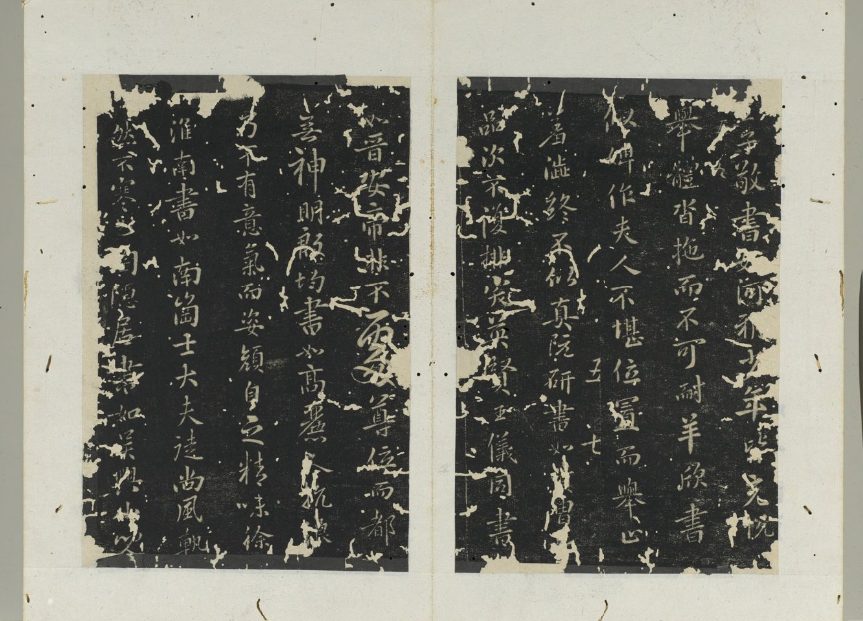 敬書如河少年皆充悅
舉體沓拖而不可耐羊欣書
似婢作夫人不堪位置而舉止
五 七
羞澁終不似真阮研書如
品次不復排突英賢王儀同書
如晉安帝非不處尊位而都
無神明殷均書如高麗人抗浪
乃不有意氣而姿顏自乏精味徐
淮南書如南崗士大夫徒尚風軌
然不寒陶隱居書如吳興小